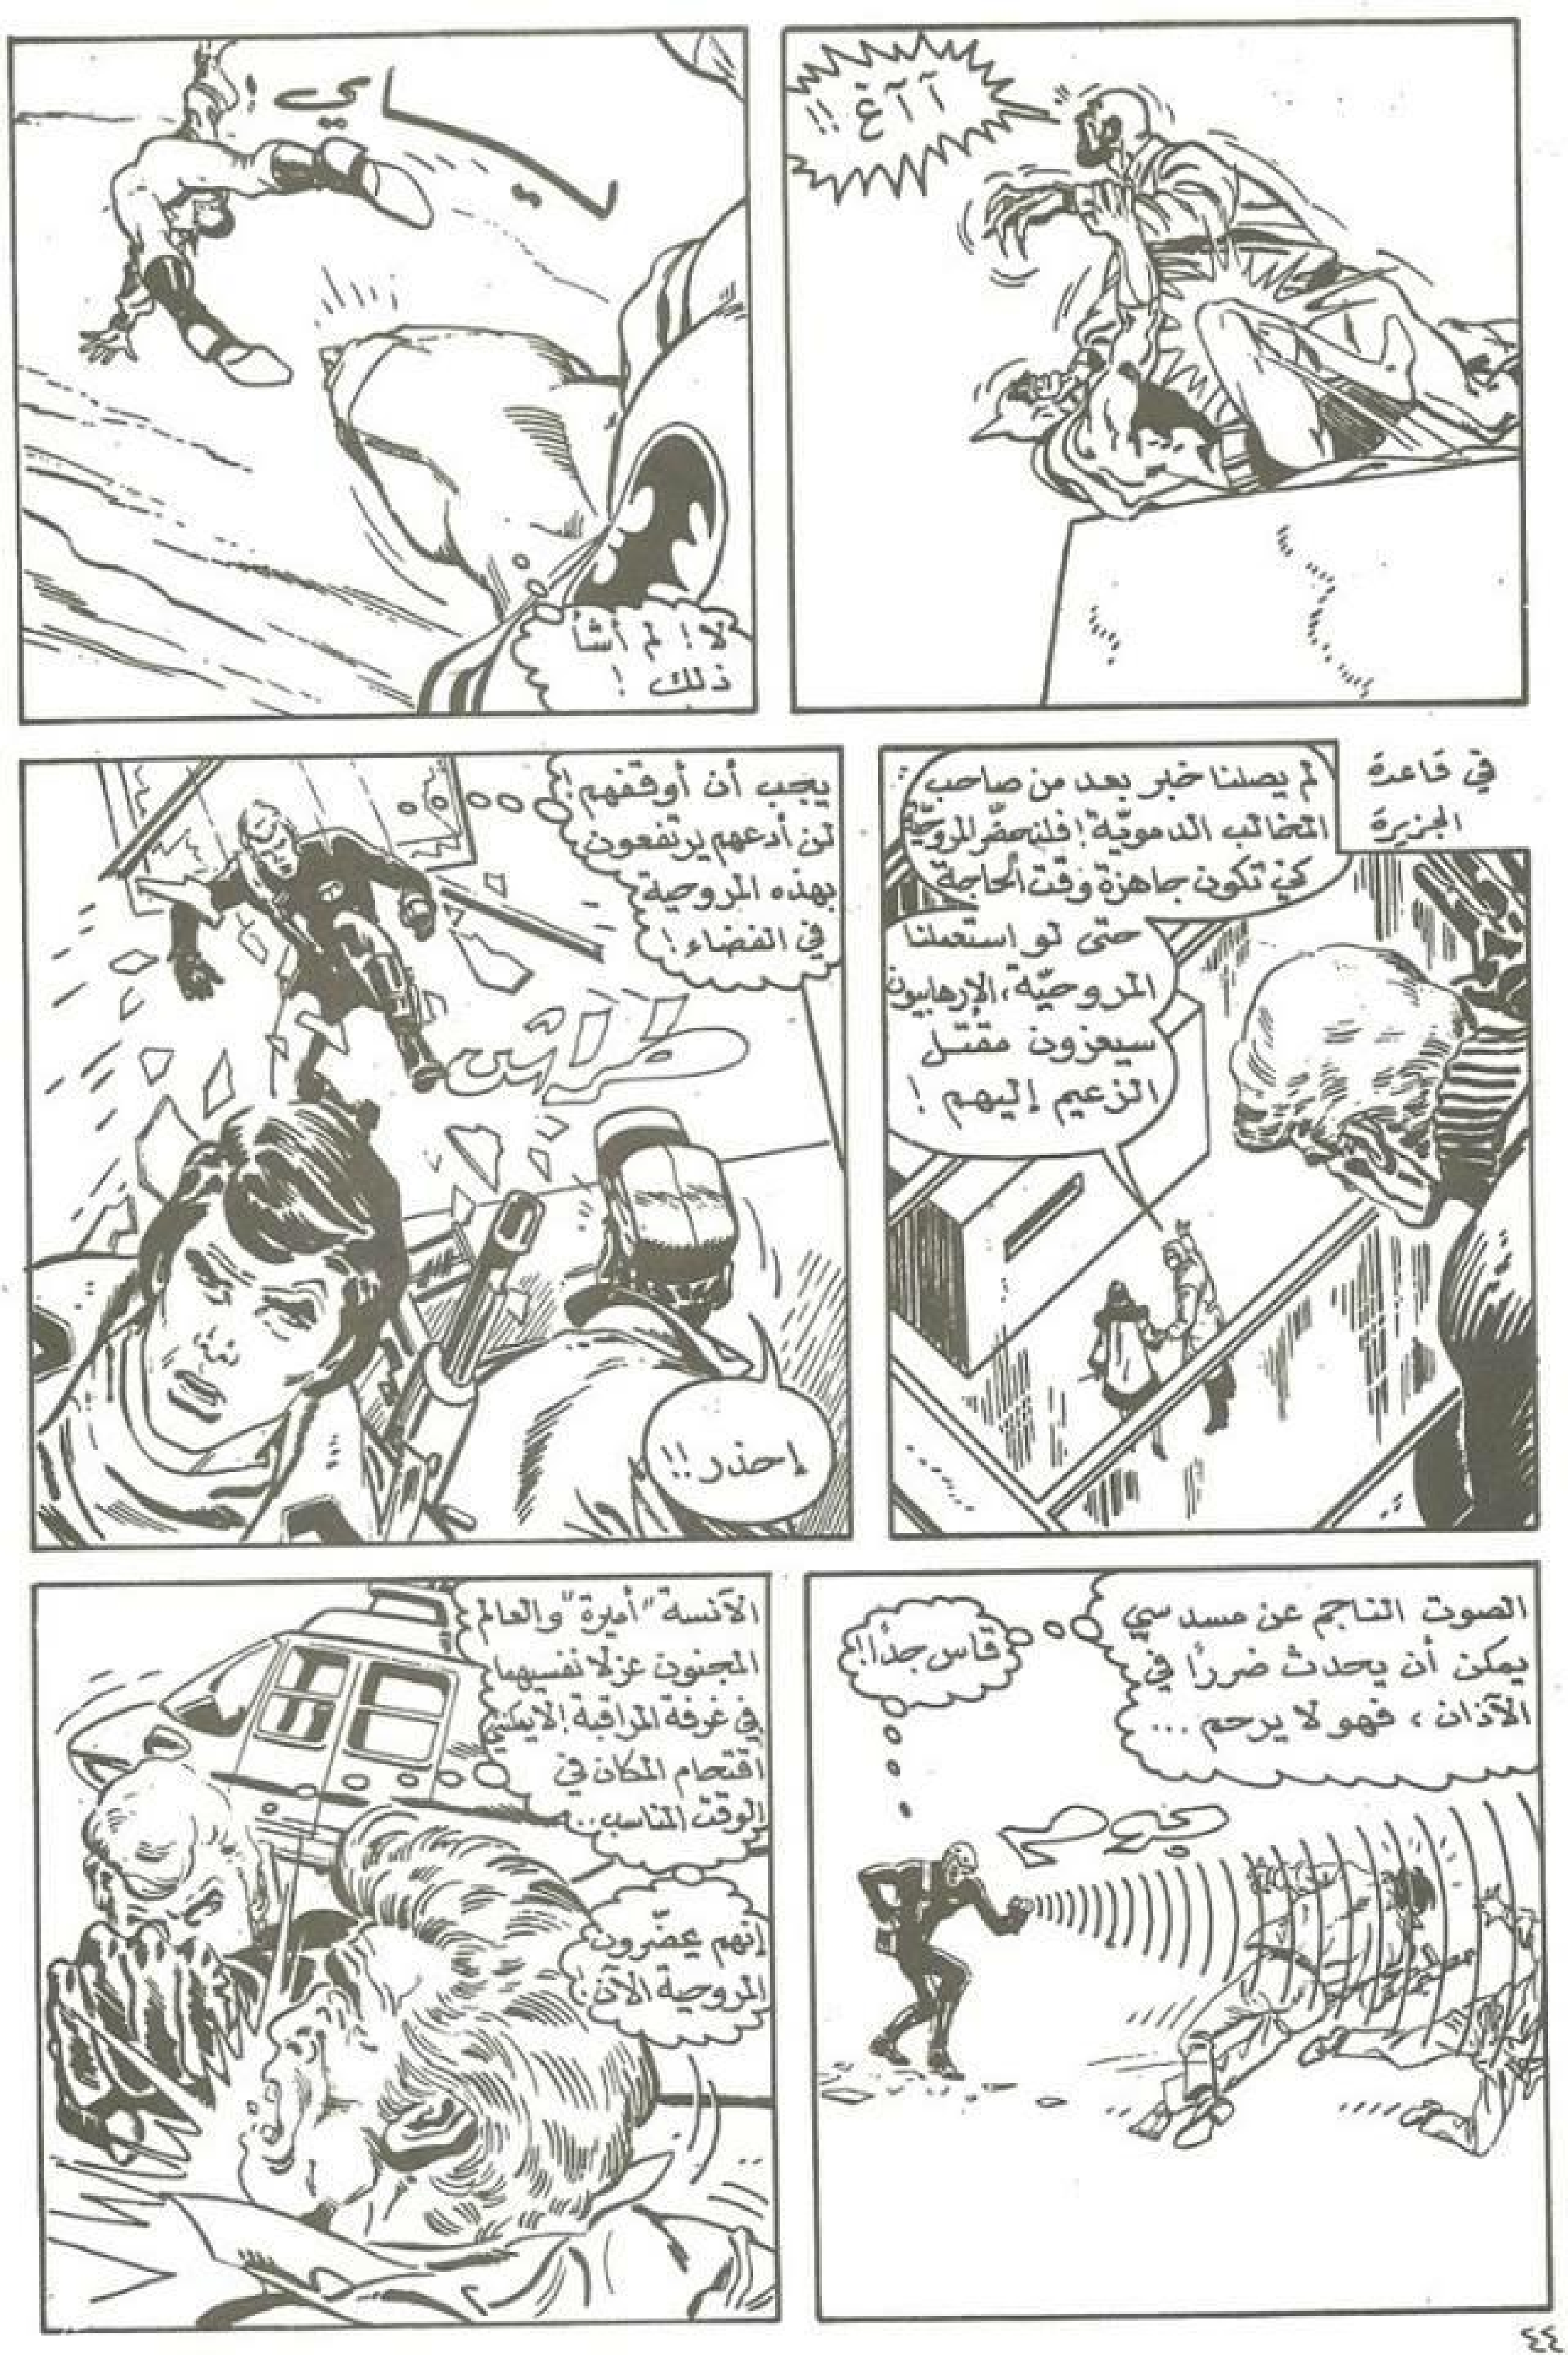 آ آ غ !!
لا ! لم أشأ
ذلك !
في قاعدة
الجزيرة
لم يصلنا خبر بعد من صاحب
المخالب الدمويّة ! فلنحضّر المروحيّة
كي تكون جاهزة وقت الحاجة
حتى لو استعملنا
المروحيّة، الإرهابيون
سيعزون مقتل
الزعيم إليهم !
يجب أن أوقفهم !
لن أدعهم يرتفعون
بهذه المروحية
في الفضاء !
طراش
إحذر !!
الصوت الناجم عن مسدسي
يمكن أن يحدث ضررًا في
الآذان ، فهو لا يرحم ...
قاس جدًا !
الآنسة "أميرة" والعالم
المجنون عزلا نفسيهما
في غرفة المراقبة !لا يمكنني
اقتحام المكان في
الوقت المناسب ...
إنهم يحضّرون
المروحية الآن !
٤٤